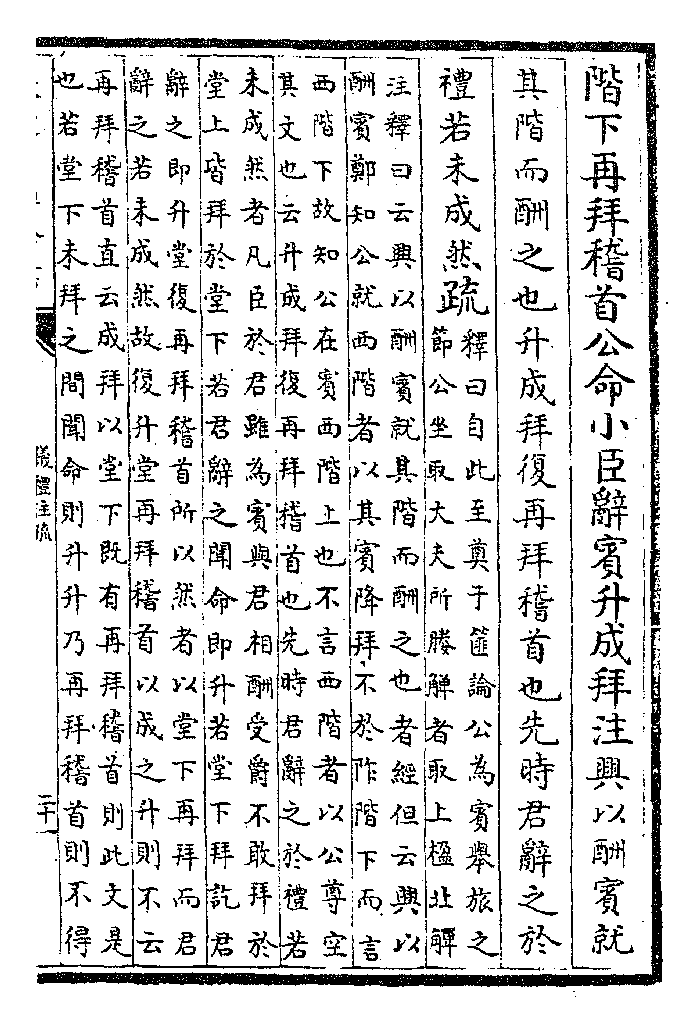 階下再拜稽首公命小臣辭賓升成拜注興以酬賓就
其階而酬之也升成拜復再拜稽首也先時君辭之於
禮若未成然疏
釋曰自此至奠于篚論公為賓舉旅之
節公坐取大夫所媵觶者取上楹北觶
注釋曰云興以酬賓就其階而酬之也者經但云興以
酬賓鄭知公就西階者以其賓降拜不於阼階下而言
西階下故知公在賓西階上也不言西階者以公尊空
其文也云升成拜復再拜稽首也先時君辭之於禮若
未成然者凡臣於君雖為賓與君相酬受爵不敢拜於
堂上皆拜於堂下若君辭之聞命即升若堂下拜訖君
辭之即升堂復再拜稽首所以然者以堂下再拜而君
辭之若未成然故復升堂再拜稽首以成之升則不云
再拜稽首直云成拜以堂下既有再拜稽首則此文是
也若堂下未拜之間聞命則升升乃再拜稽首則不得
儀禮注疏
二十一